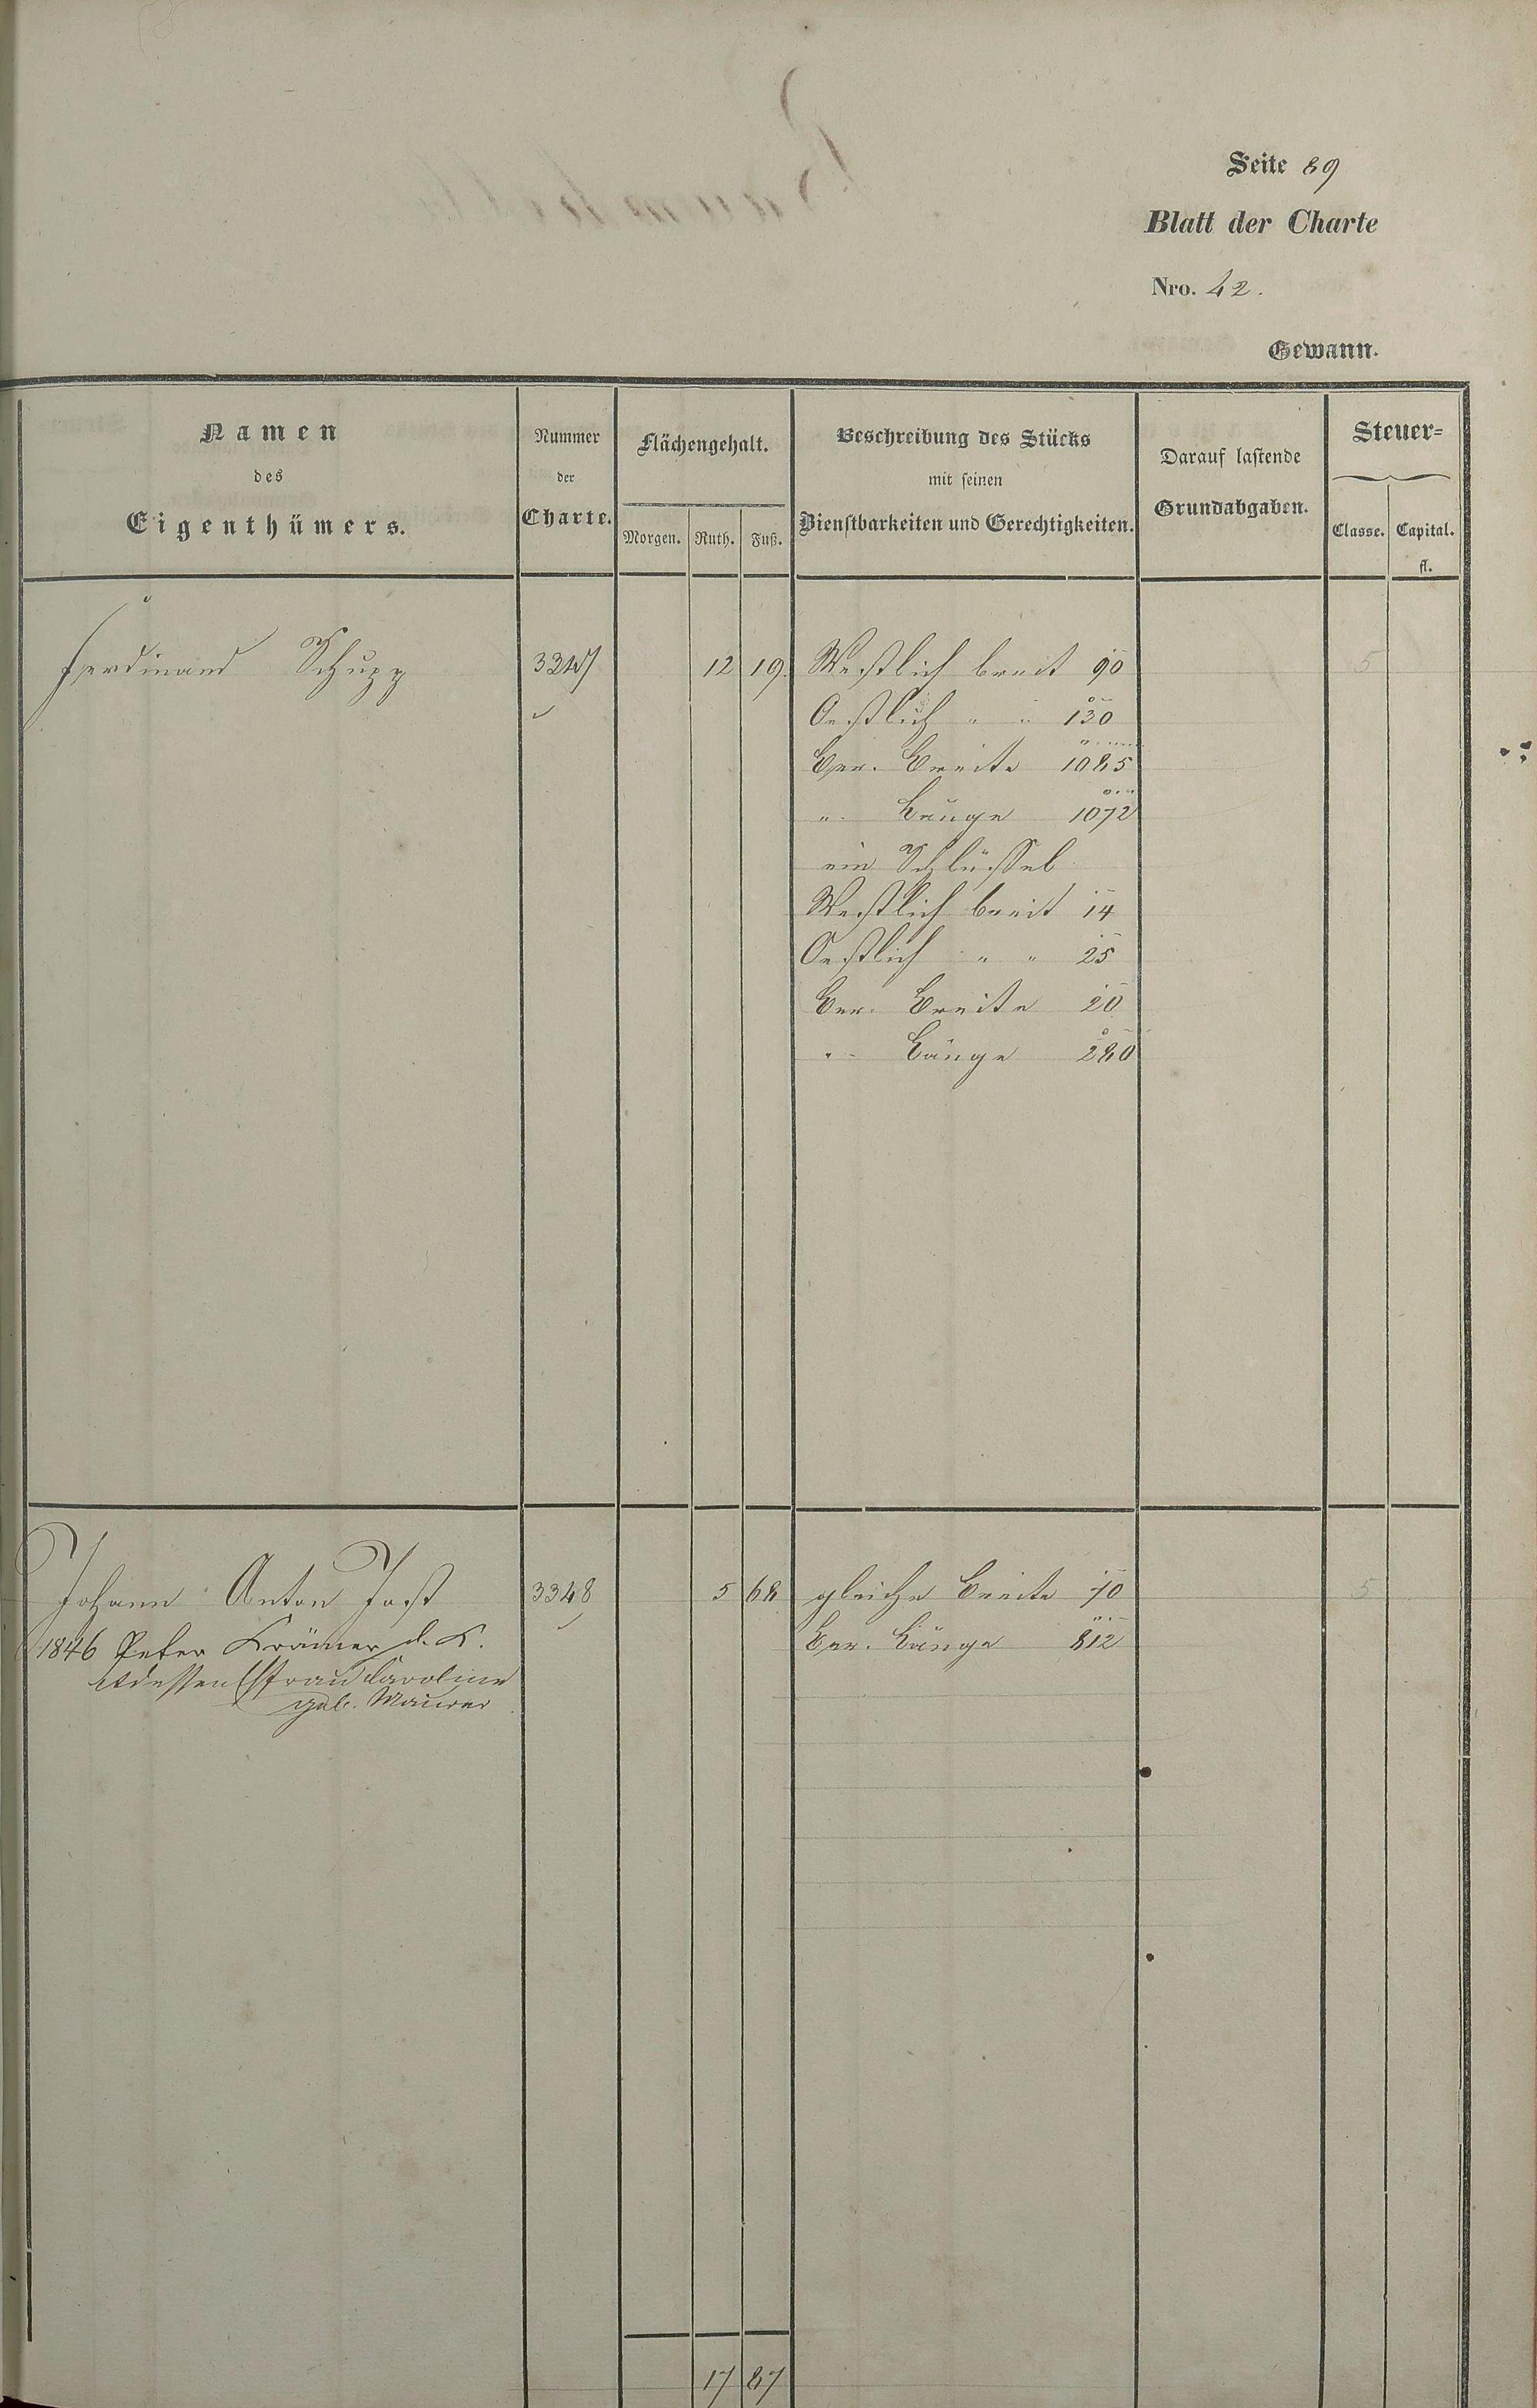 Seite 89
Blatt der Charte
Nro. 42.
Gewann.
Namen des Eigenthümers.
Nummer der Charte.
Flächengehalt.
Morgen. Ruth. Fuß.
Beschreibung des Stücks mit seinen Dienstbarkeiten und Gerechtigkeiten.
Darauf lastende Grundabgaben.
Steuer=
Classe. Capital.
fl.
Ferdinand Schupp 3347 12 19. Westlich breit 90 5
Oestlich " " 130
Ber. Breite 1085
" Länge 1072
ein Schlüssel
Westlich breit 14
Oestlich " " 25
Ber. Breite 20
" Länge 280
Johann Anton Jost 3348 5 68 gleiche Breite 70 5
1846 Peter Krämer d. K. Ber. Länge 812
dessen Frau Caroline
geb. Maurer
17 87